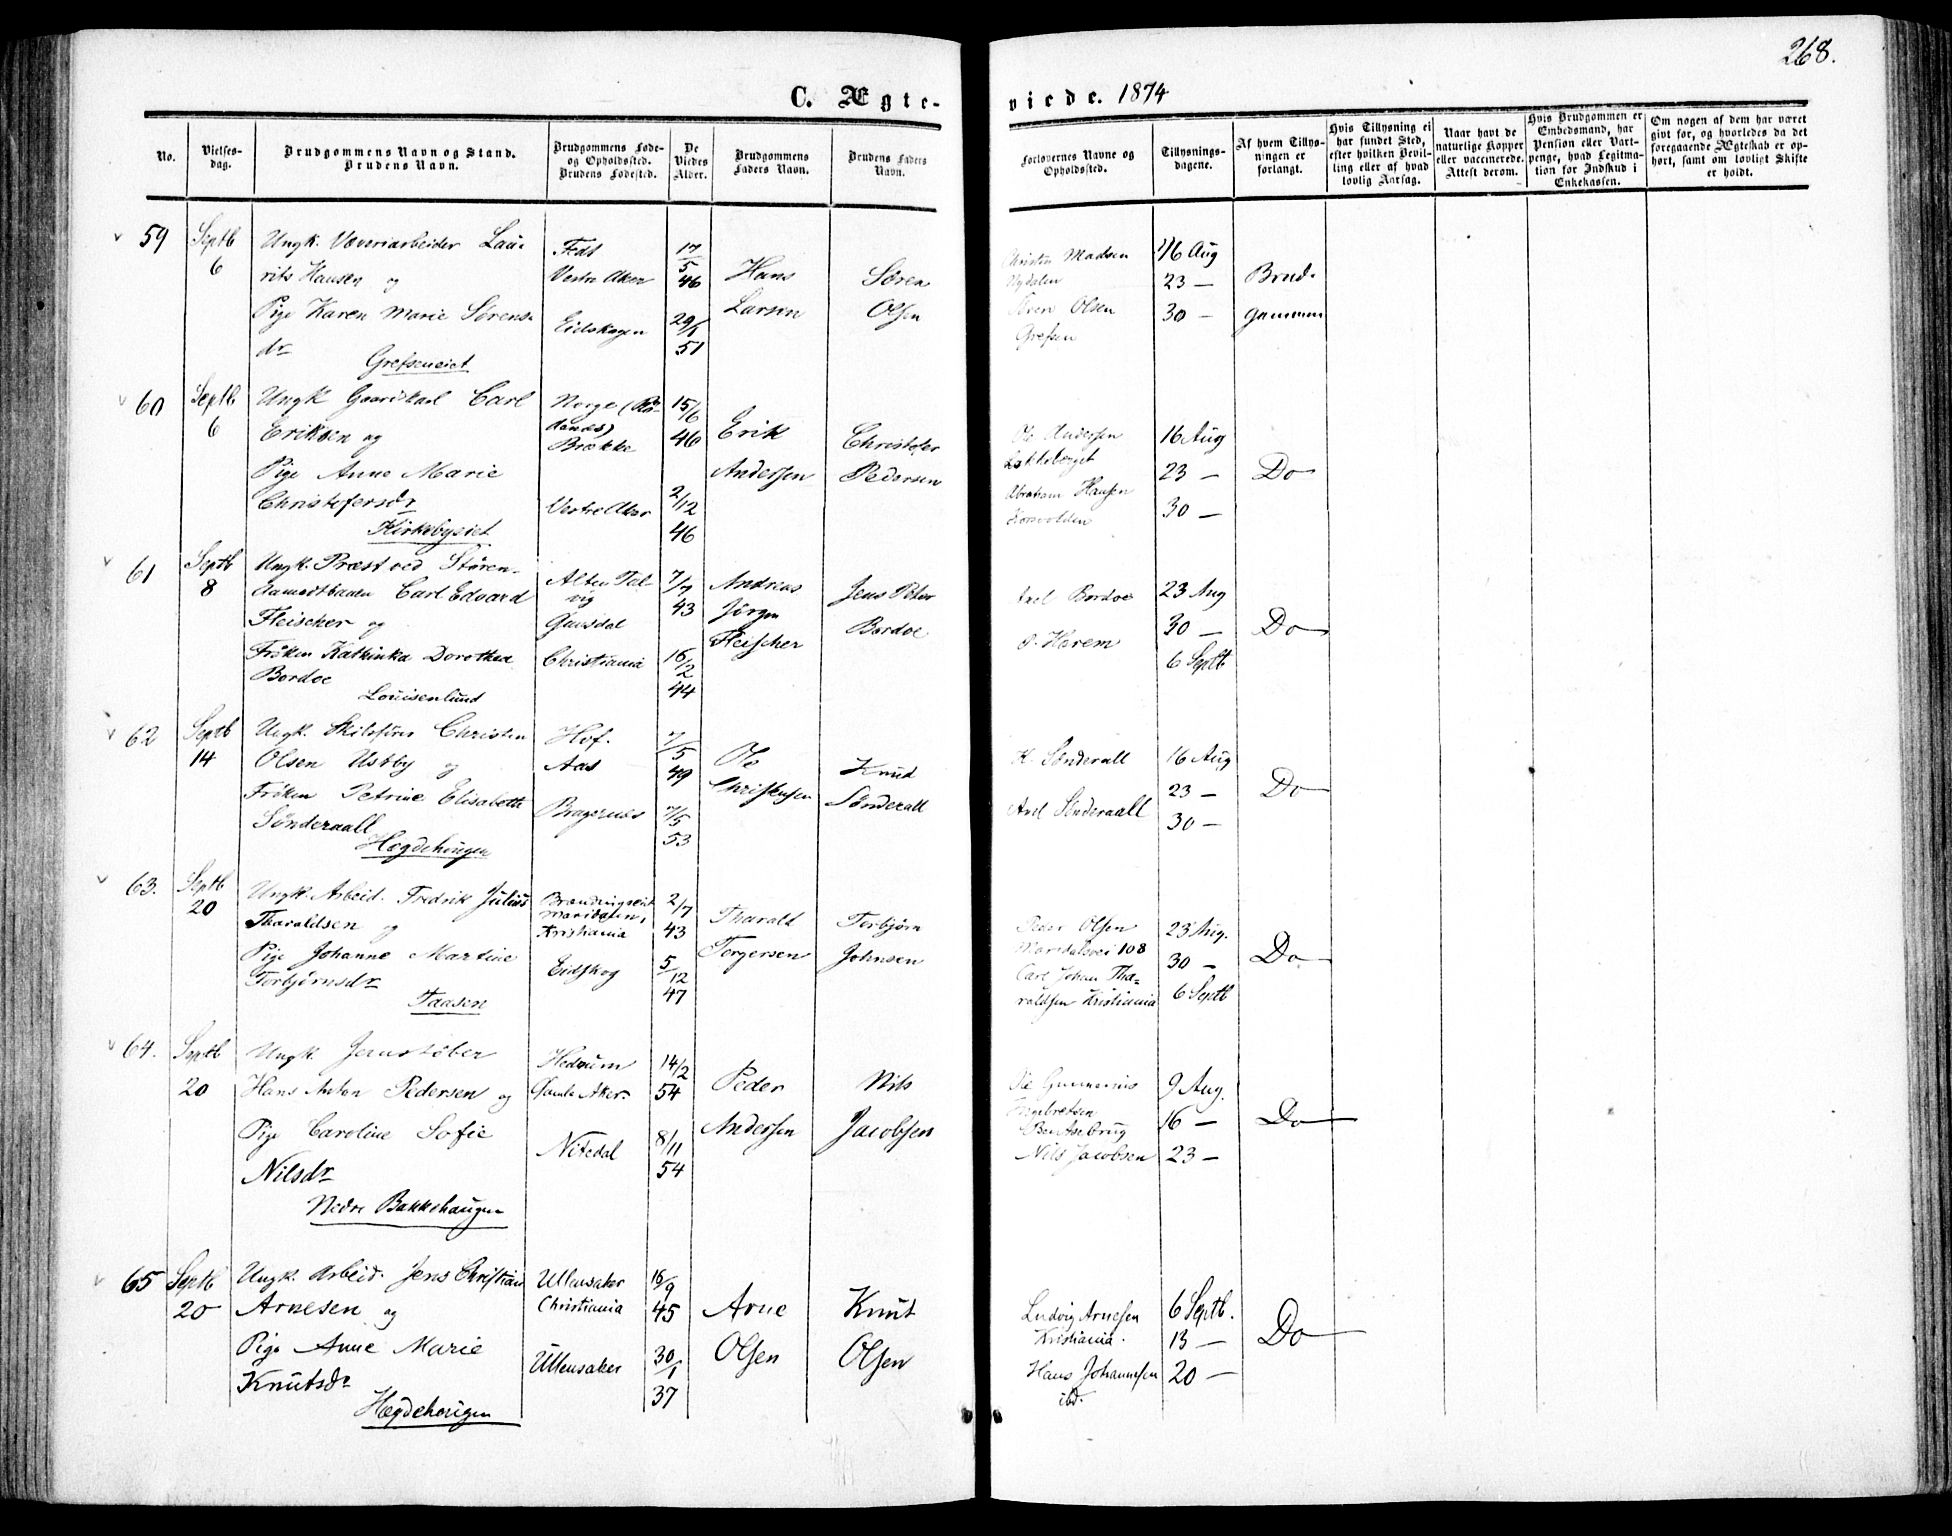 268.
C. Ægteviede. 1874
No.
Vielsesdag.
Brudgommens Navn og Stand.
Brudens Navn.
Brudgommens Føde-
og Opholdssted.
Brudens Fødested.
De
Viedes
Alder.
Brudgommens
Faders Navn.
Brudens Faders
Navn.
Forlovernes Navne og
Opholdssted.
Tillysnings-
dagene.
Af hvem Tillys-
ningen er
forlangt.
Hvis Tillysning ei
har fundet Sted,
efter hvilken Bevil-
ling eller af hvad
lovlig Aarsag.
Naar havt de
naturlige Kopper
eller vaccinerede.
Attest derom.
Hvis Brudgommen er
Embedsmand, har
Pension eller Vart-
penge, hvad Legitima-
tion for Indskud i
Enkekassen.
Om nogen af dem har været
givt før, og hvorledes da det
foregaaende Ægteskab er op-
hørt, samt om lovligt Skifte
er holdt.
59
Septb
6
Ungk. Væveriarbeider Lau-
rits Hansen og
Pige Karen Marie Sørens-
dr
Grefseneiet
Fedt
Vestre Aker
Eidskogen
17/5
46
29/5
51
Hans
Larsen
Søren
Olsen
Christen Madsen
Nydalen
Søren Olsen
Grefsen
16 Aug
23 —
30 —
Brud-
gommen
60
Septb
6
Ungk Gaardskarl Carl
Eriksen og
Pige Anne Marie
Christofersdr
Kirkebyeiet
Norge
Brække
Vestre Aker
15/6
46
2/12
46
Erik
Andersen
Christofer
Pedersen
Ole Andersen
Løkkeberget
Abraham Hansen
Korsvolden
16 Aug
23 —
30 —
Do
61
Septb
8
Ungk. Præst ved Støren-
Aamodtbanen Carl Edvard
Fleischer og
Frøken Kathinka Dorothea
Bordoe
Louisenlund
Alten Tal-
vig
Gausdal
Christiania
7/7
43
16/2
44
Andreas
Jørgen
Fleischer
Jens Peter
Bordoe
Axel Bordoe
O. Harem
23 Aug
30 —
6 Septb
Do
62
Septb
14
Ungk. Skibsfører Christen
Olsen Usbby og
Frøken Petrine Elisabeth
Sønderaall
Hægdehougen
Hof.
Aas
Bragernes
7/5
49
7/5
53
Ole
Christensen
Knud
Sønderall
K. Sønderall
Axel Sønderaall
16 Aug
23 —
30 —
Do
63.
Septb
20
Ungk. Arbeid. Fredrik Julius
Tharaldsen og
Pige Johanne Martine
Torbjørnsdr
Taasen
Maridalen,
Kristiania
Eidskog
2/7
43
5/12
47
Tharald
Torgersen
Torbjørn
Johnsen
Peder Olsen
Maridalsvei 108
Carl Johan Tha-
raldsen Kristiania
23 Aug.
30 —
6 Septb
Do
64.
Septb
20
Ungk. Jernstøber
Hans Anton Pedersen og
Pige Caroline Sofie
Nilsdr
Nedre Bakkehaugen
Hedrum
Gamle Aker
Nitedal
14/2
54
8/11
54
Peder
Andersen
Nils
Jacobsen
Ole Gunnerius
Engebretsen
Bentsebrug
Nils Jacobsen
9 Aug.
16 —
23 —
Do
65
Septb
20
Ungk. Arbeid. Jens Christian
Arnesen og
Pige Anne Marie
Knutsdr
Hægdehougen
Ullensaker
Christiania
Ullensaker
16/9
45
30/1
37
Arne
Olsen
Knut
Olsen
Ludvig Arnesen
Kristiania.
Hans Johannesen
ibd.
6 Septb.
13 —
20 —
Do